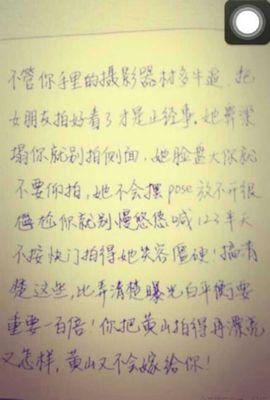 不管你手里的摄影器材多牛逼，把
女朋友拍好看了才是正经事。她鼻梁
塌你就别拍侧面，她脸盘大你就
不要仰拍，她不会摆pose放不开很
尴尬你就别慢悠悠喊123半天
不按快门拍得她笑容僵硬！搞清
楚这些，比弄清楚曝光白平衡要
重要一百倍！你把黄山拍得再漂亮
又怎样，黄山又不会嫁给你！